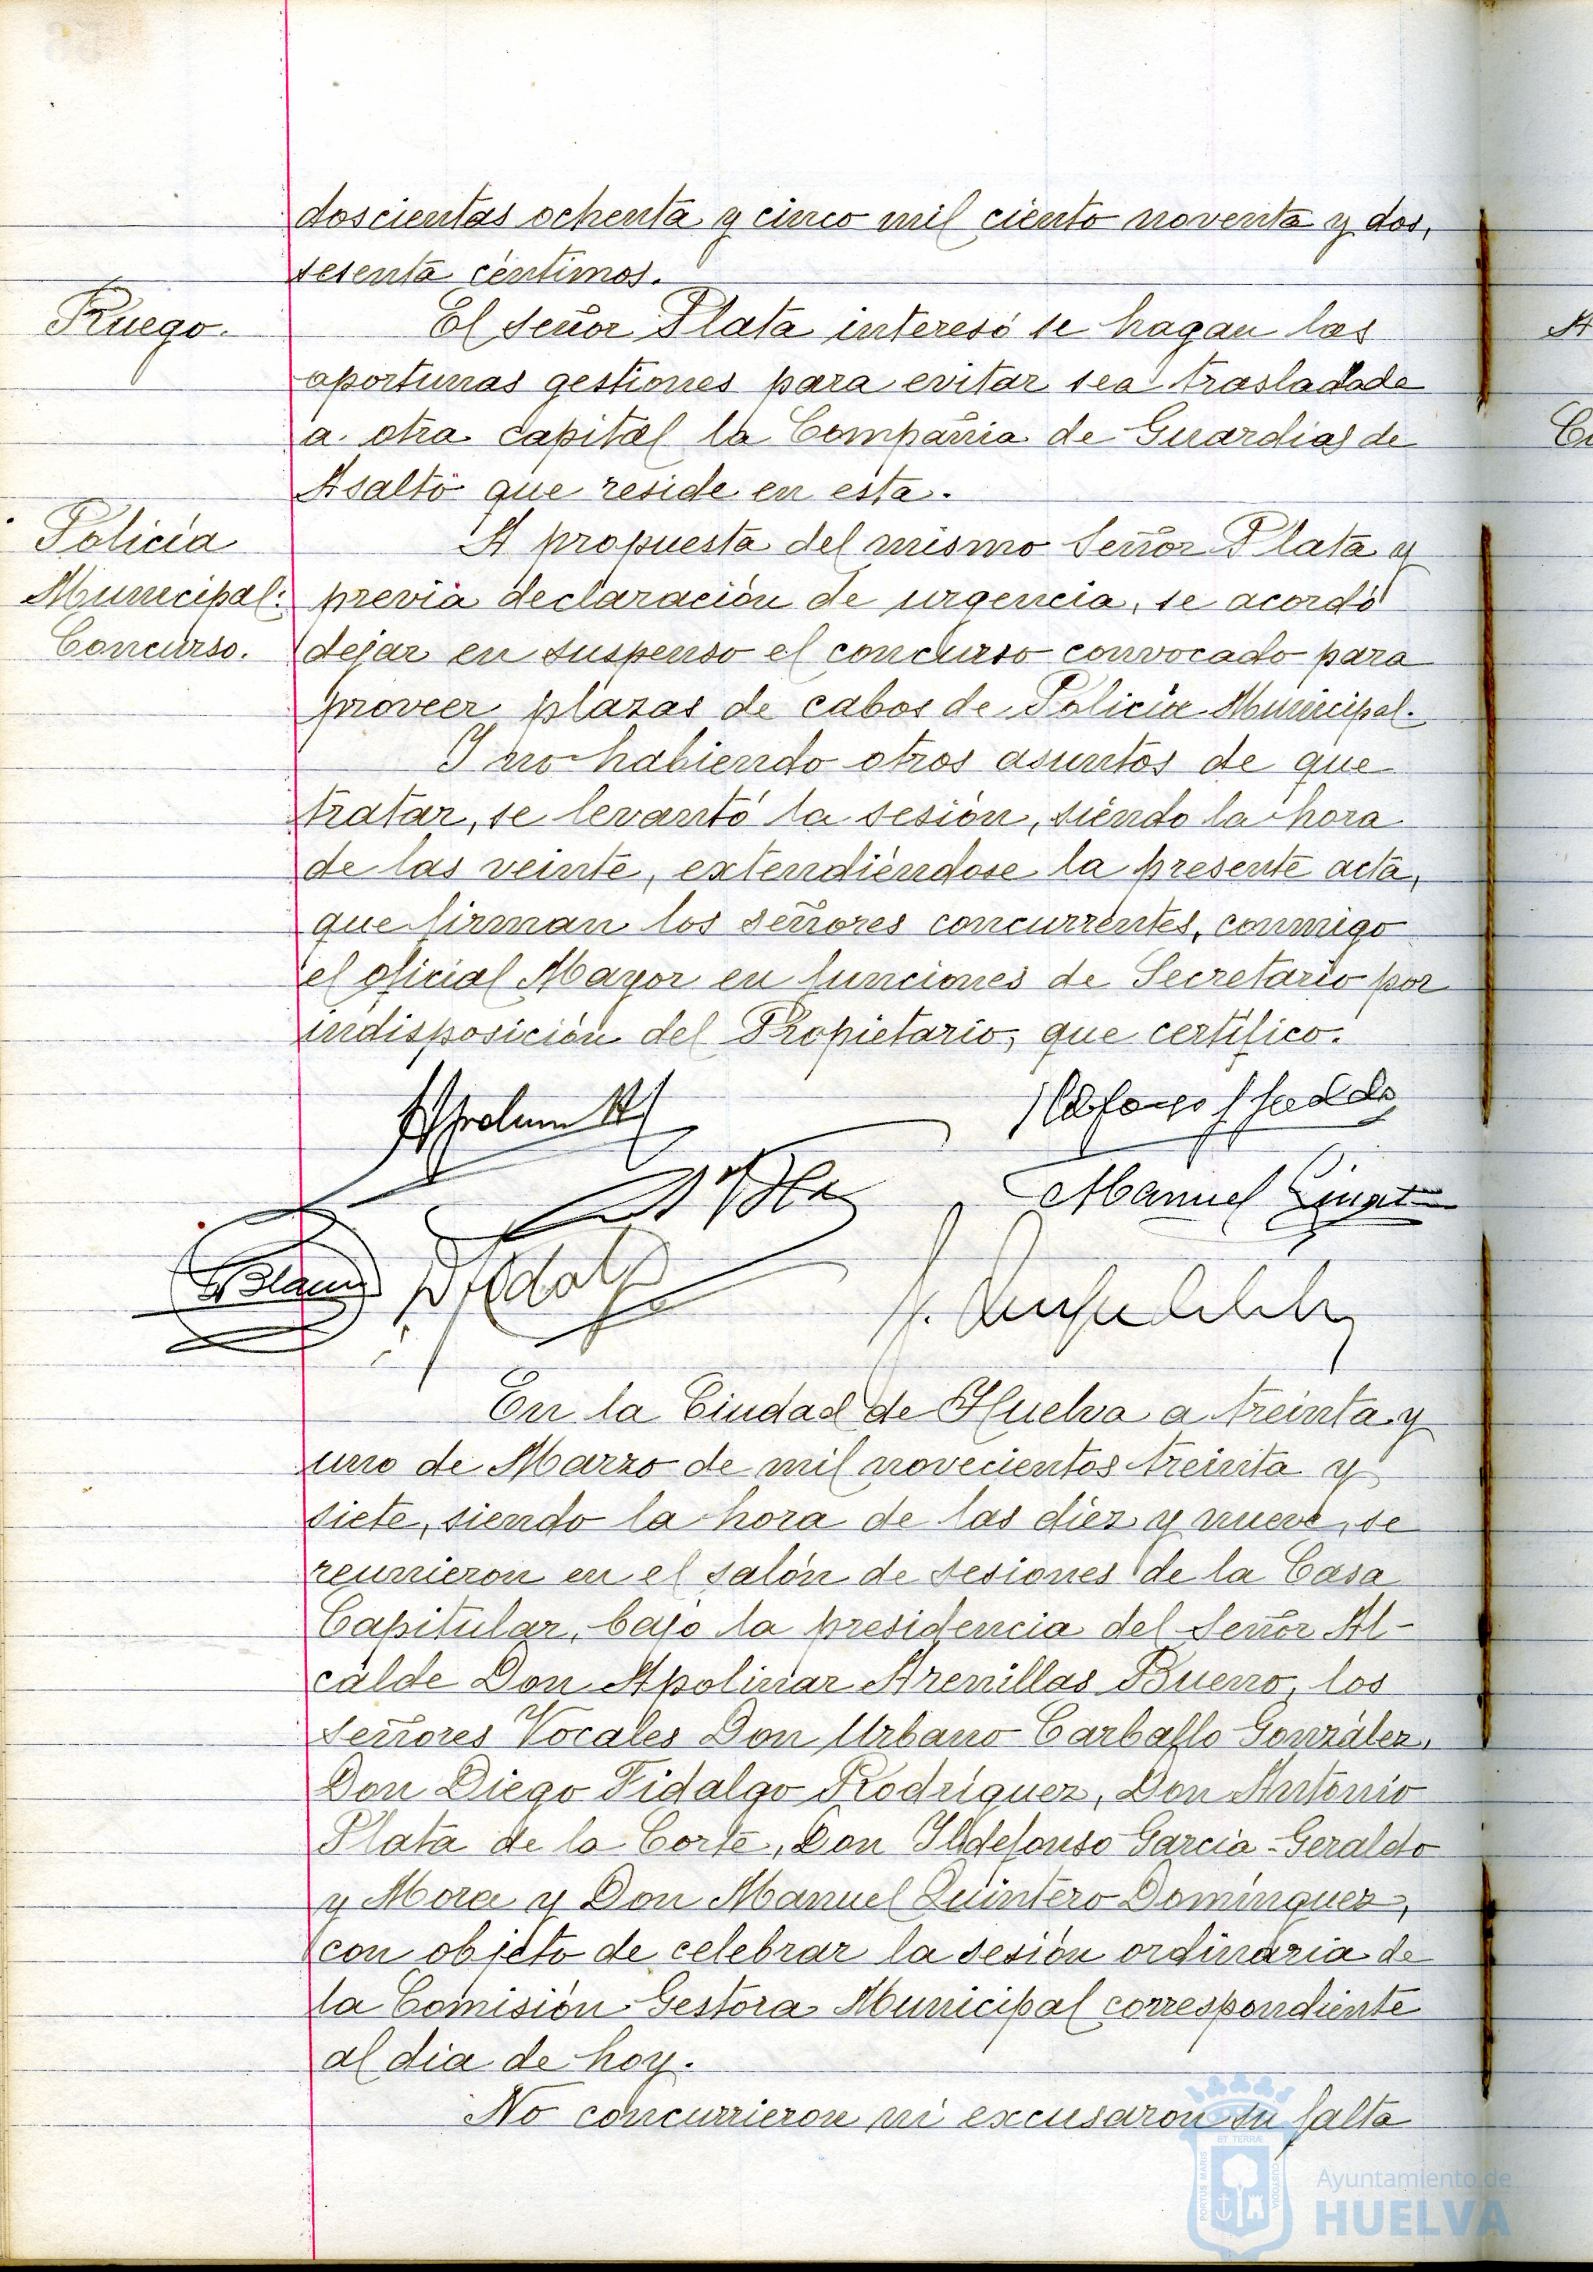 doscientas ochenta y cinco mil ciento noventa y dos,
sesenta céntimos.
Ruego.
El señor Plata interesó se hagan las
oportunas gestiones para evitar sea trasladada
a otra capital la Compañia de Guardias de
Asalto que reside en esta.
Policía
Municipal:
Concurso.
A propuesta del mismo Señor Plata y
previa declaración de urgencia, se acordó
dejar en suspenso el concurso convocado para
proveer plazas de cabos de Policia Municipal.
Y no habiendo otros asuntos de que
tratar, se levantó la sesión, siendo la hora
de las veinte, extendiéndose la presente acta,
que firman los señores concurrentes, conmigo
el oficial Mayor en funciones de Secretario por
indisposición del Propietario, que certifico.
Manuel
En la Ciudad de Huelva a treinta y
uno de Marzo de mil novecientos treinta y
siete, siendo la hora de las diez y nueve, se
reunieron en el salón de sesiones de la Casa
Capitular, bajo la presidencia del Señor Al-
calde Don Apolinar Arenillas Bueno, los
señores Vocales Don Urbano Carballo González,
Don Diego Fidalgo Rodríguez, Don Antonio
Plata de la Corte, Don Ildefonso Garcia-Geraldo
y Mora y Don Manuel Quintero Domínguez,
con objeto de celebrar la sesión ordinaria de
la Comisión Gestora Municipal correspondiente
al dia de hoy.
No concurrieron ni excusaron su falta
PORTUS MARIS ET TERRÆ CUSTODIA
Ayuntamiento de
HUELVA